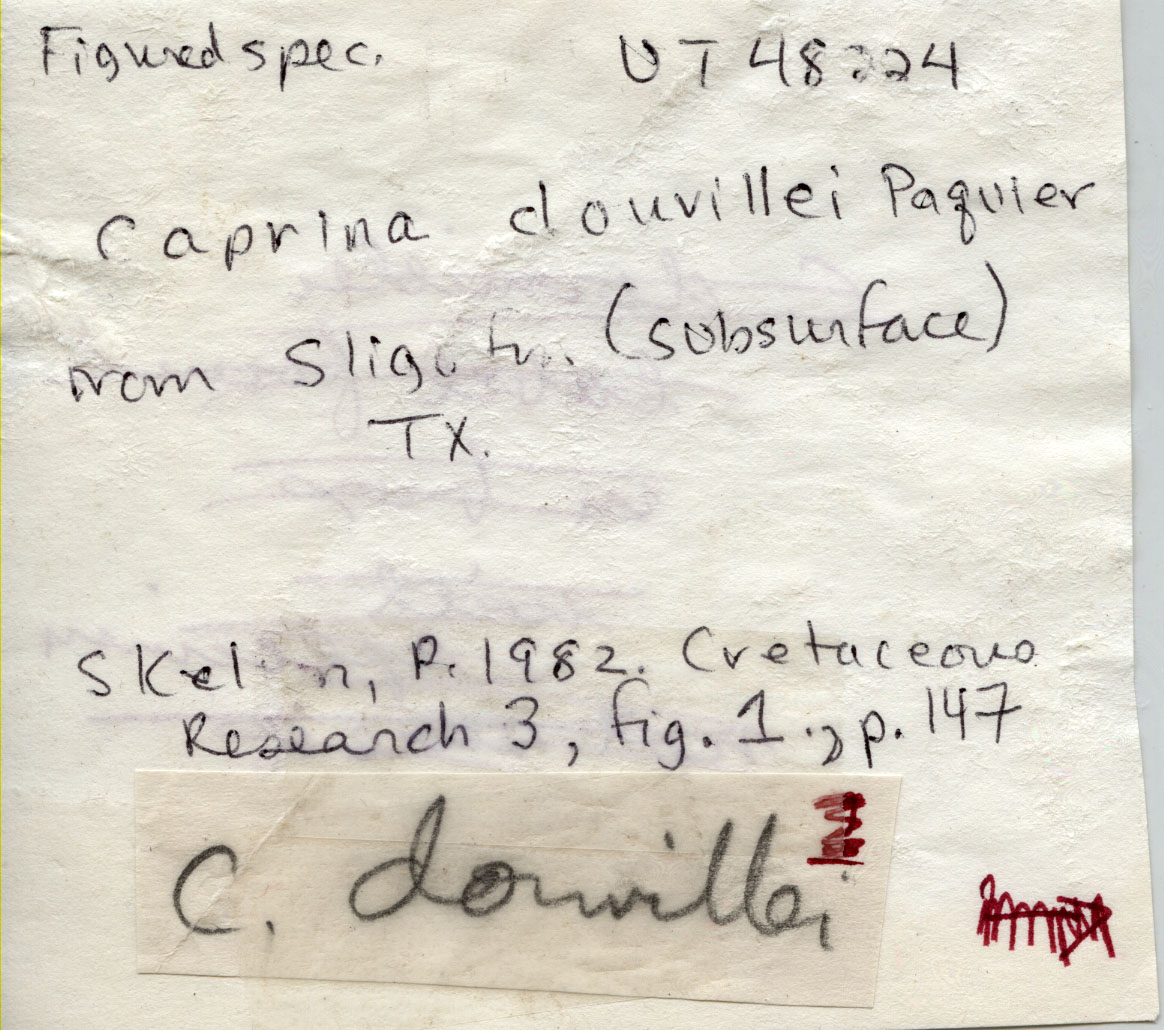 Figured spec. UT 48224
Caprina douvillei Paquier
from Sligo fm. (subsurface)
TX.
Skelton, P. 1982. Cretaceous
Research 3, fig. 1., p. 147
C. douvillei